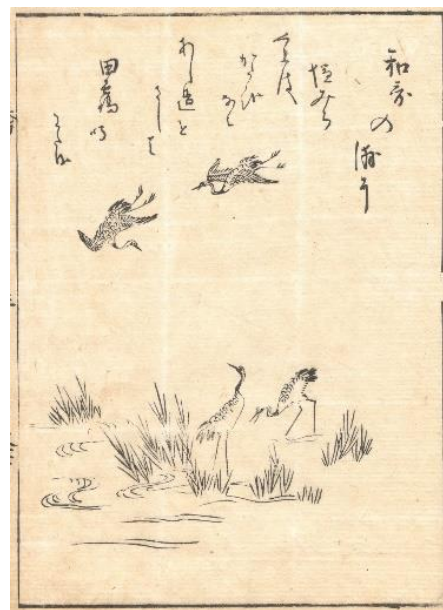 和哥の浦に
塩みち
くれは
かたを
なみ
あし邊を
さして
田鶴鳴
わたる